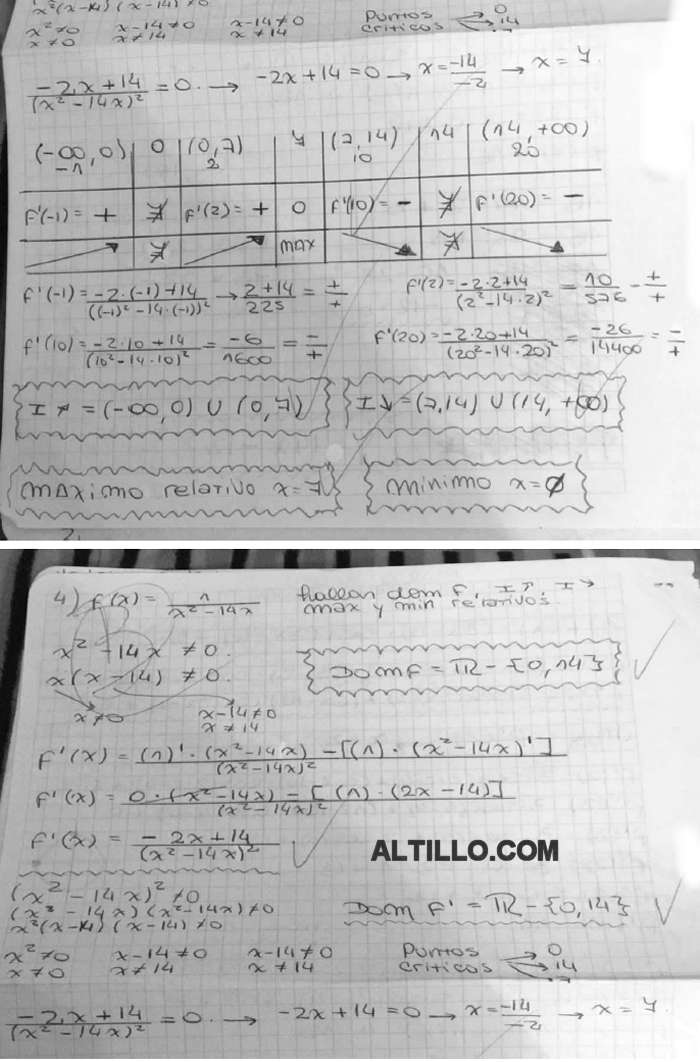 x²(x-14)(x-14)≠0
x²≠0 x-14≠0 x-14≠0 Puntos → 0
x≠0 x≠14 x≠14 críticos → 14
-2x+14/(x²-14x)² = 0. → -2x+14=0 → x=-14/-2 → x=7.
(-∞,0) 0 (0,7) 7 (7,14) 14 (14,+∞)
-1 2 10 20
F'(-1)=+ ∄ F'(2)=+ 0 F'(10)=- ∄ F'(20)=-
↗ ∄ ↗ max ↘ ∄ ↘
F'(-1)=-2·(-1)+14/((-1)²-14·(-1))² → 2+14/225 = +/+ F'(2)=-2·2+14/(2²-14·2)² = 10/576 - +/+
F'(10)=-2·10+14/(10²-14·10)² = -6/1600 = -/+ F'(20)=-2·20+14/(20²-14·20)² = -26/14400 = -/+
I↗=(-∞,0)∪(0,7) I↘=(7,14)∪(14,+∞)
máximo relativo x=7 mínimo x=∅
4) f(x)=1/x²-14x hallar dom F, I↑, I↘
max y min relativos.
x²-14x≠0.
x(x-14)≠0. Dom F=ℝ-{0,14}
x≠0 x-14≠0
x≠14
F'(x)=(1)'·(x²-14x)-[(1)·(x²-14x)']/(x²-14x)²
F'(x)=0·(x²-14x)-[(1)·(2x-14)]/(x²-14x)²
F'(x)=-2x+14/(x²-14x)²
ALTILLO.COM
(x²-14x)²≠0
(x²-14x)(x²-14x)≠0 Dom F'=ℝ-{0,14}
x²(x-14)(x-14)≠0
x²≠0 x-14≠0 x-14≠0 Puntos → 0
x≠0 x≠14 x≠14 críticos → 14
-2x+14/(x²-14x)² = 0. → -2x+14=0 → x=-14/-2 → x=7.